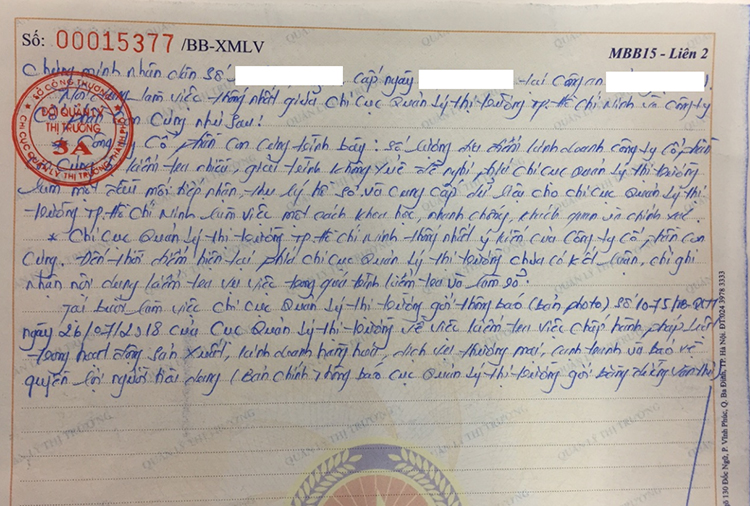 Số: 00015377 /BB-XMLV
MBB15 - Liên 2
Chứng minh nhân dân số cấp ngày tại Công an
Nội dung làm việc thống nhất giữa Chi Cục Quản Lý thị trường TP. Hồ Chí Minh và Công ty
Cổ phần Con Cưng như sau:
SỞ CÔNG THƯƠNG
ĐỘI QUẢN LÝ
THỊ TRƯỜNG
3A
CHI CỤC QUẢN LÝ THỊ TRƯỜNG THÀNH PHỐ
Công ty Cổ phần Con Cưng trình bày: số lượng địa điểm kinh doanh công ty cổ phần
Con Cưng kiểm tra nhiều, giải trình không xuể đề nghị phía chi cục Quản Lý thị trường
làm một đầu mối tiếp nhận, thụ lý hồ sơ và Cung cấp dữ liệu cho chi cục Quản Lý thị
trường TP. Hồ Chí Minh làm việc một cách khoa học, nhanh chóng, khách quan và chính xác.
* Chi Cục Quản Lý thị trường TP. Hồ Chí Minh thống nhất ý kiến của Công ty Cổ phần Con
Cưng. Đến thời điểm hiện tại phía Chi Cục Quản Lý thị trường chưa có kết luận, chỉ ghi
nhận nội dung kiểm tra vụ việc trong quá trình kiểm tra và làm số.
Tại buổi làm việc Chi Cục Quản Lý thị trường gởi thông báo (bản photo) số
ngày 26/07/2018 của Cục Quản Lý thị trường về việc kiểm tra việc chấp hành pháp luật
trong hoạt động sản xuất, kinh doanh hàng hoá, dịch vụ thương mại, cạnh tranh và bảo vệ
quyền lợi người tiêu dùng (Bản chính thông báo cục Quản Lý thị trường gởi bằng đường văn thư)
QUẢN LÝ THỊ TRƯỜNG
130 Đốc Ngữ, P. Vĩnh Phúc, Q. Ba Đình, TP. Hà Nội, ĐT: 024 3978 3333